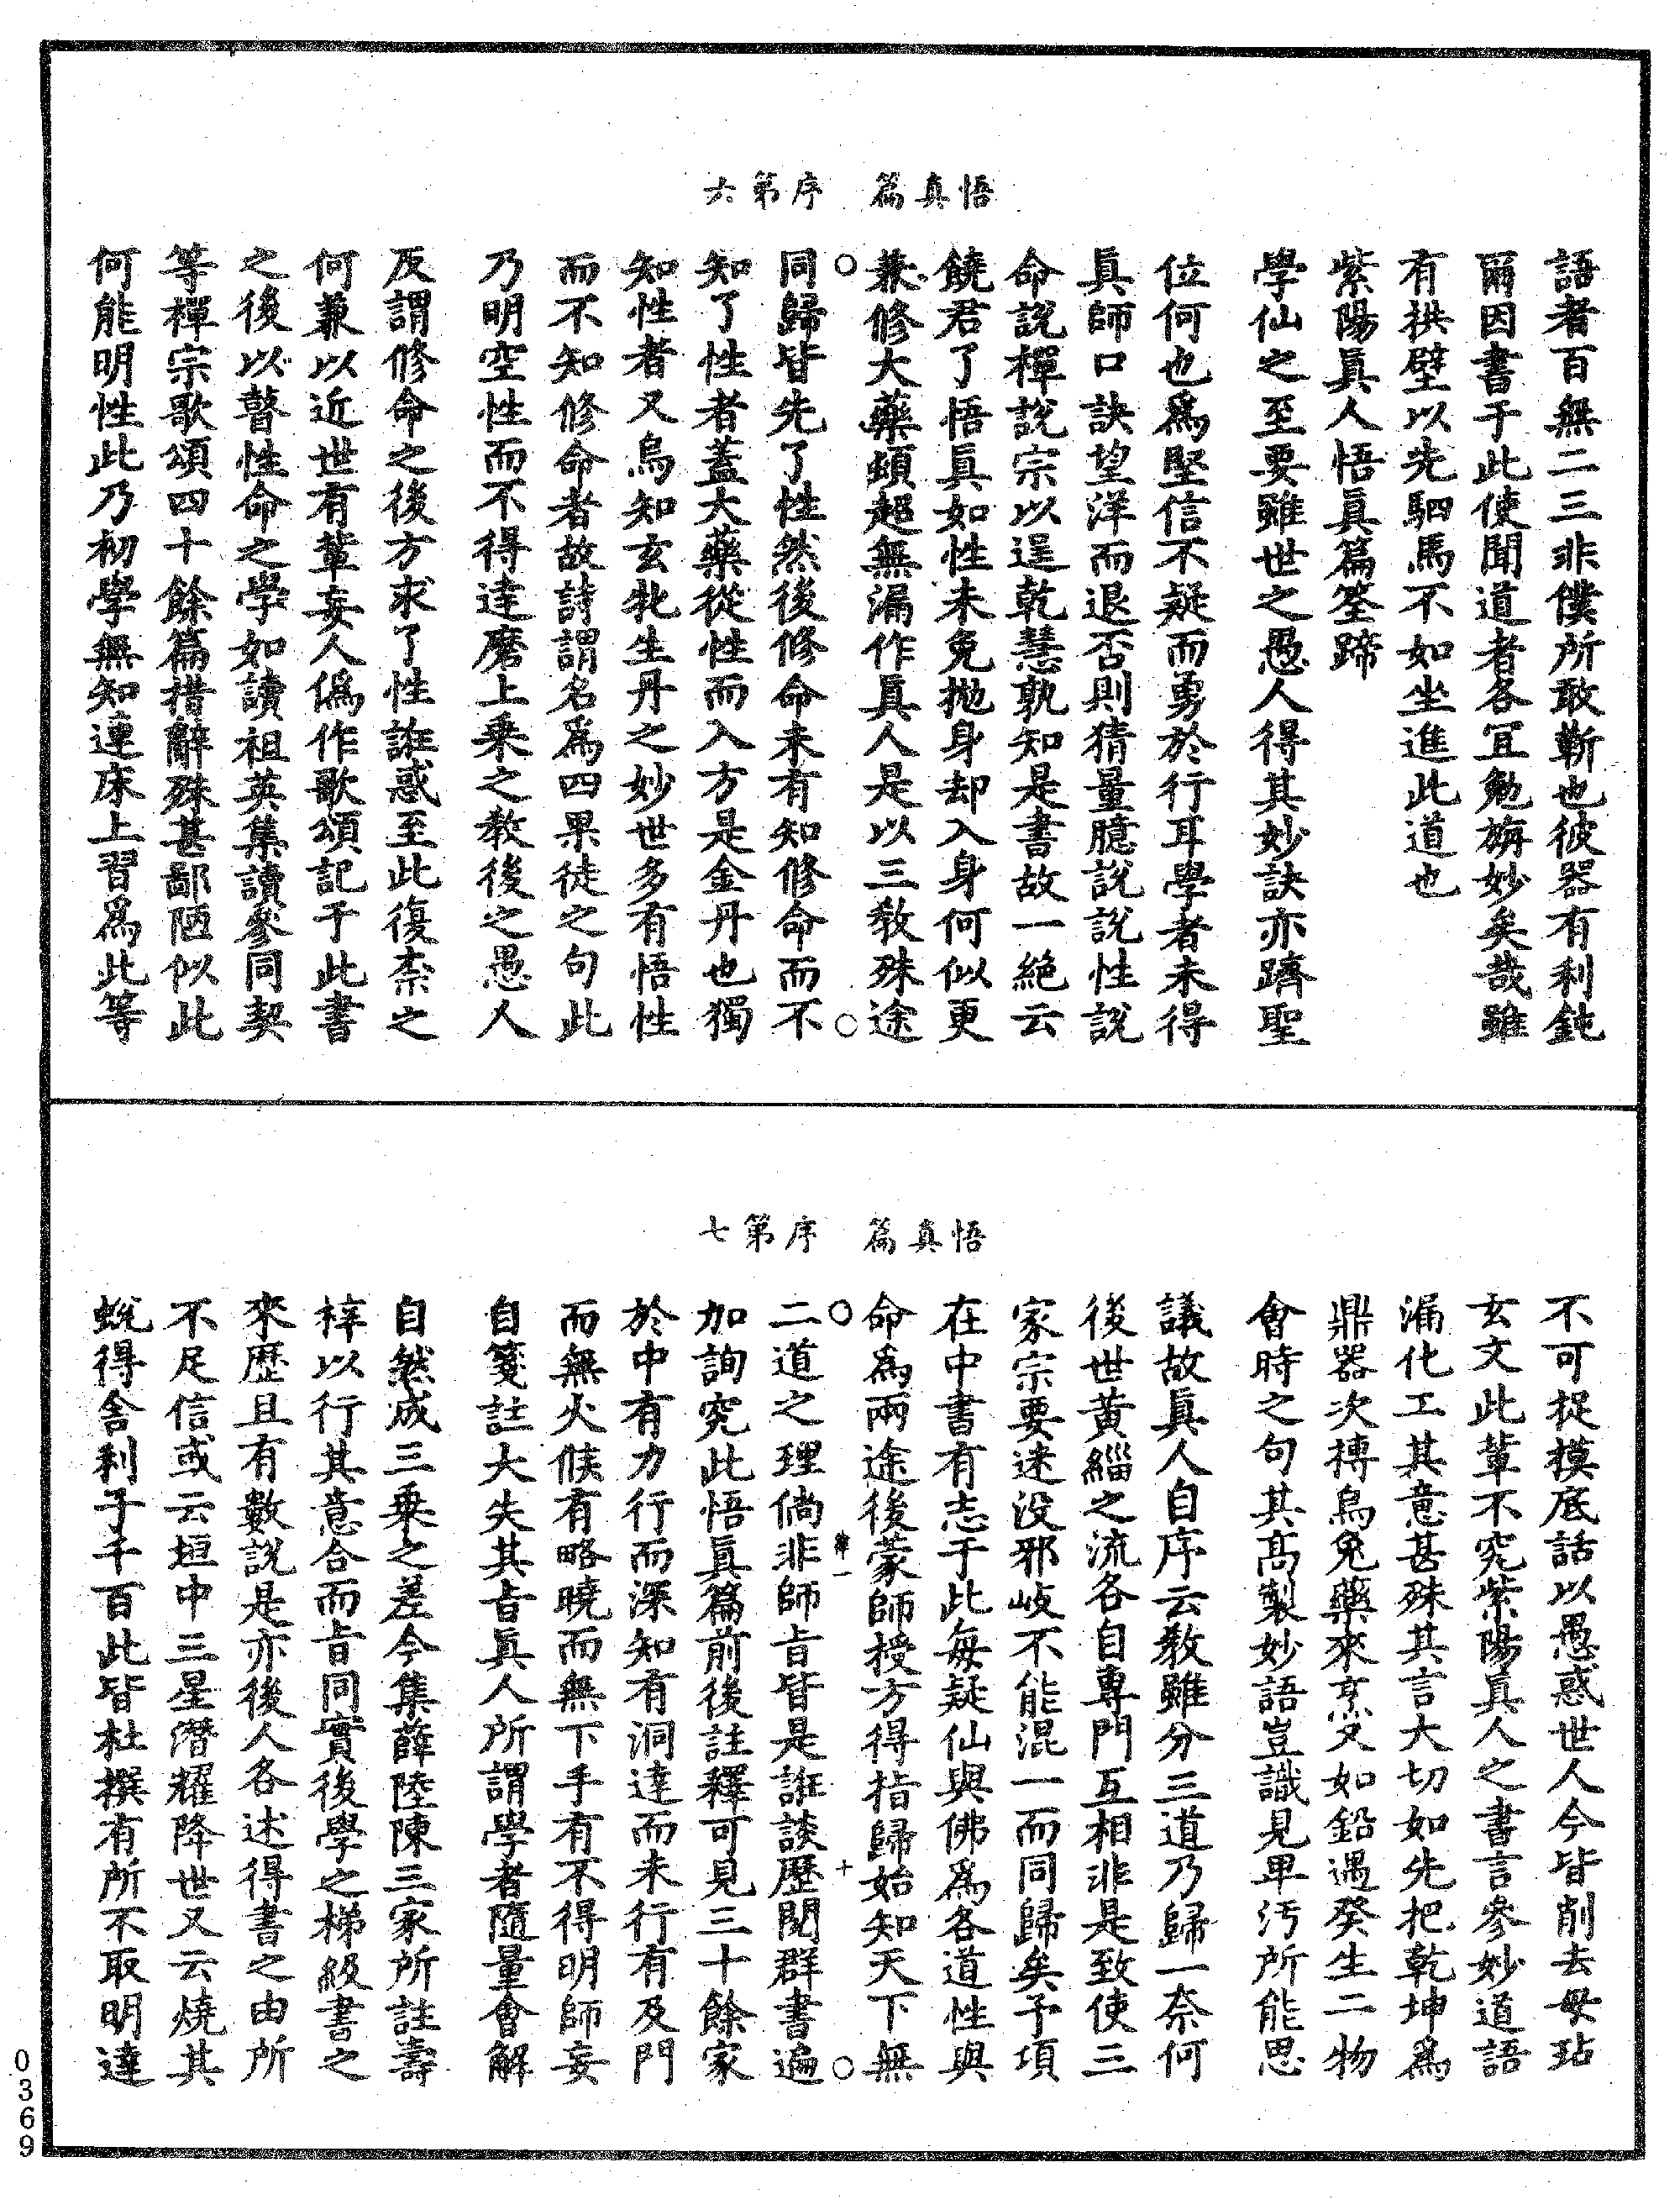 悟真篇　序第六
語者百無二三非僕所敢靳也彼器有利鈍
爾因書于此使聞道者各冝勉旃妙矣哉雖
有拱璧以先駟馬不如坐進此道也
紫陽真人悟真篇筌蹄
學仙之至要雖世之愚人得其妙訣亦躋聖
位何也為堅信不疑而勇於行耳學者未得
真師口訣望洋而退否則猜量臆說說性說
命說禪說宗以逞乾慧孰知是書故一絕云
饒君了悟真如性未免拋身却入身何似更
兼修大藥頓超無漏作真人是以三教殊途
同歸皆先了性然後修命未有知修命而不
知了性者蓋大藥從性而入方是金丹也獨
知性者又烏知玄牝生丹之妙世多有悟性
而不知修命者故詩謂名為四果徒之句此
乃明空性而不得達磨上乘之教後之愚人
反謂修命之後方求了性誑惑至此復柰之
何兼以近世有輩妄人偽作歌頌記于此書
之後以瞽性命之學如讀祖英集讀參同契
等禪宗歌頌四十餘篇措辭殊甚鄙陋似此
何能明性此乃初學無知連床上習為此等
悟真篇　序第七
不可捉摸底話以愚惑世人今皆削去毋玷
玄文此輩不究紫陽真人之書言參妙道語
漏化工其意甚殊其言大切如先把乾坤為
鼎器次摶烏兔藥來烹又如鉛遇癸生二物
會時之句其高製妙語豈識見卑污所能思
議故真人自序云教雖分三道乃歸一奈何
後世黃緇之流各自專門互相非是致使三
家宗要迷没邪岐不能混一而同歸矣予項
在中書有志于此每疑仙與佛為各道性與
命為兩途後蒙師授方得指歸始知天下無
二道之理倘非師旨皆是誑談歷閱群書遍
加詢究此悟真篇前後註釋可見三十餘家
於中有力行而深知有洞達而未行有及門
而無火候有略曉而無下手有不得明師妄
自箋註大失其旨真人所謂學者隨量會解
自然成三乘之差今集薛陸陳三家所註壽
梓以行其意合而旨同實後學之梯級書之
來歷且有數說是亦後人各述得書之由所
不足信或云垣中三星潛耀降世又云燒其
蛻得舍利子千百此皆杜撰有所不取明達
0369